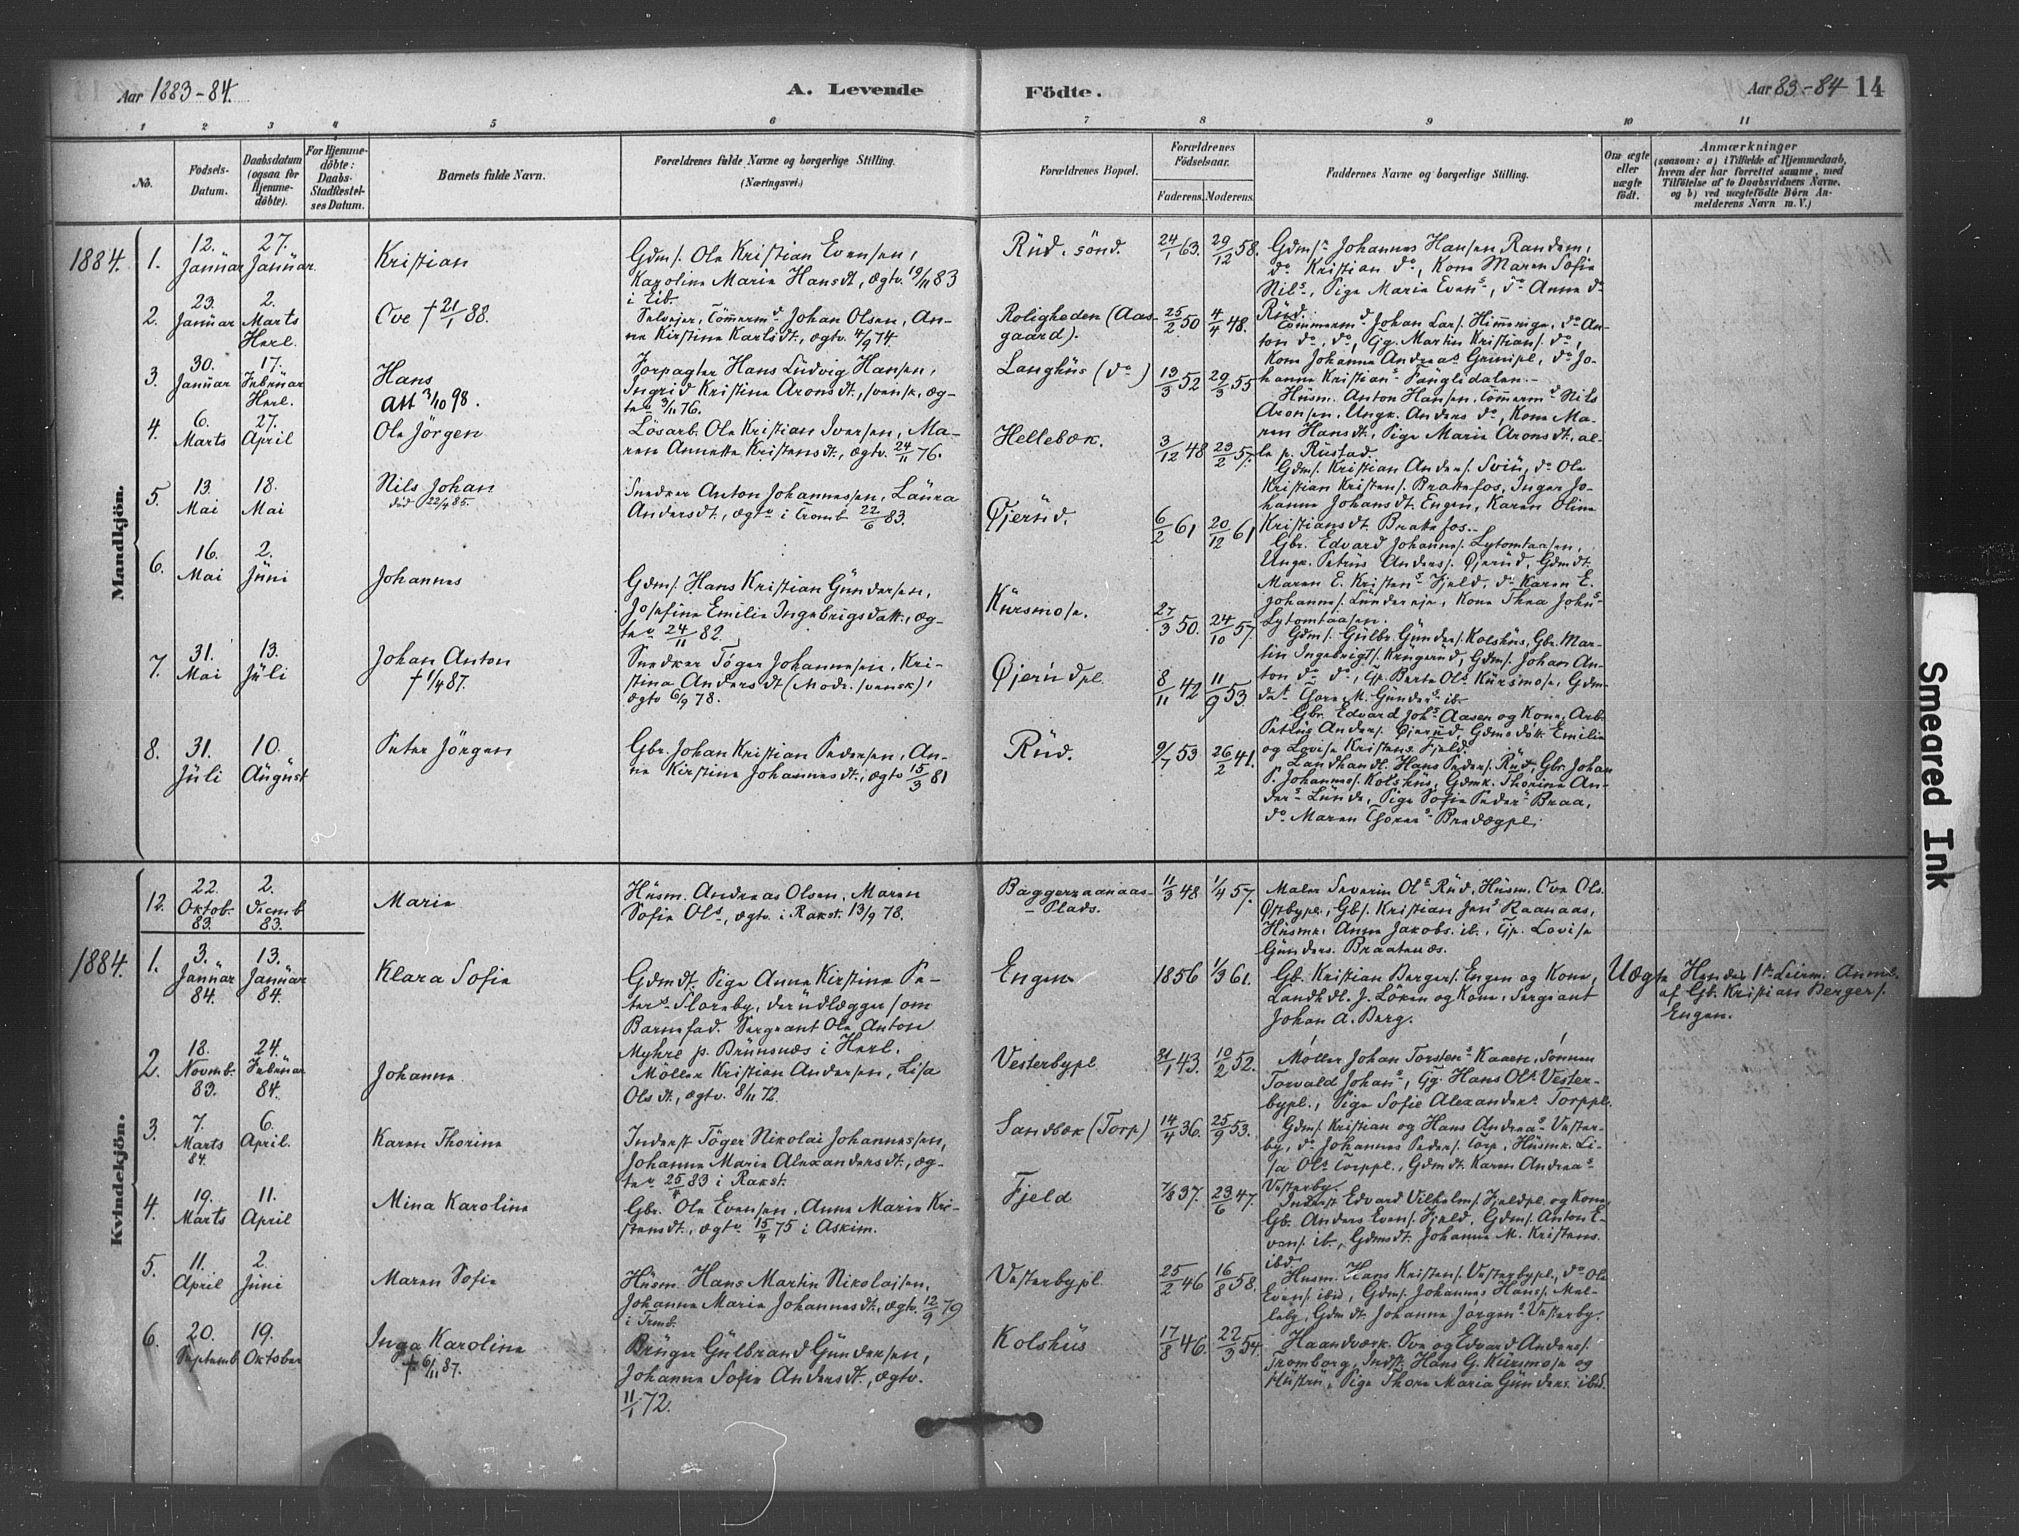 Aar 1883-84.
A. Levende
Födte.
Aar 83-84
14
1
2
3
4
5
6
7
8
9
10
11
No.
Födsels-
Datum.
Daabsdatum
(ogsaa for
Hjemme-
döbte).
For Hjemme-
döbte:
Daabs-
Stadfæstel-
ses Datum.
Barnets fulde Navn.
Forældrenes fulde Navne og borgerlige Stilling.
(Næringsvei.)
Forældrenes Bopæl.
Forældrenes
Födselsaar.
Faderens.
Moderens.
Faddernes Navne og borgerlige Stilling.
Om ægte
eller
uægte
födt.
Anmærkninger
(saasom: a) i Tilfælde af Hjemmedaab,
hvem der har forrettet samme, med
Tilföielse af to Daabsvidners Navne,
og b) ved uægtefödte Börn An-
melderens Navn m. V.)
Mandkjön.
1884.
1.
12.
Januar
27.
Januar.
Kristian
Gdms. Ole Kristian Evensen,
Karoline Marie Hansdt, ægtv. 19/11 83
i Eib.
Rüd, sönd.
24/1 63.
29/12 58.
Gdms. Johannes Hansen Randem,
do Kristian do, Kone Maren Sofie
Nils., Pige Marie Evens, do Anne do
Rüd.
2.
23.
Januar
2.
Marts
Herl.
Ove † 21/1 88.
Selvejer, Tömmermd Johan Olsen, An-
ne Kirstine Karlsdt, ægtv. 4/9 74.
Roligheden (Aas-
gaard).
25/2 50
4/4 48.
Tömmermd Johan Lars. Himmerige, do An-
ton do, do, Gg. Martin Kristians. do,
Kone Johanne Andreas Grinipl, do Jo-
hanne Kristians Fanglidalen.
3.
30.
Januar
17.
Februar
Herl.
Hans
Att 3/10 98.
Forpagter Hans Ludvig Hansen,
Ingrid Kristine Aronsdt, svensk, æg-
tev 3/11 76.
Langhüs (do)
13/3 52
29/3 55
Husm. Anton Hansen, Tömmermd Nils
Aronsen, Ungk. Anders do, Kone Ma-
ren Hansdt, Pige Marie Aronsdt, al-
le p. Rustad.
4.
6.
Marts
27.
April
Ole Jörgen
Lösarb. Ole Kristian Iversen, Ma-
ren Annette Kristensdt, ægtv. 24/11 76.
Hellebæk.
3/12 48
23/2 57.
Gdms. Kristian Anders. Sviü, do Ole
Kristian Kristens. Brattefos, Inger Jo-
hanne Johansdt Engen, Karen Oline
Kristiansdt. Brattefos.
5.
13.
Mai
18.
Mai
Nils Johan
död 22/4 85.
Snedker Anton Johannessen, Laura
Andersdt, ægtv i Tromb 22/6 83.
Øjerüd.
6/2 61
20/12 61
Gbr. Edvard Johannes. Lytomtaasen,
Ungk. Petrus Anders. Øjerüd, Gdmdt.
Maren E. Kristens Fjeld, do Karen E.
Johannes. Lundereje, Kone Thea Johns
Lytomtaasen.
6.
16.
Mai
2.
Juni
Johannes
Gdms. Hans Kristian Gundersen,
Josefine Emilie Ingebrigsdatt., æg-
tev 24/11 82.
Kursmose.
27/3 50.
24/10 57.
Gdms. Gulbr. Gunders. Kolshüs, Gbr. Mar-
tin Ingebrigts. Krügerüd, Gdms. Johan An-
ton do do, Gp. Berte Ols Kursmose, Gdm-
dat Thore M. Gunders ib.
7.
31.
Mai
13.
Juli
Johan Anton
† 1/4 87.
Snedker Töger Johannesen, Kri-
stina Andersdt (Modr. svensk),
ægtv 6/9 78.
Øjerudpl.
8/11 42
11/9 53.
Gbr. Edvard Johs Aasen og Kone, Arb.
Petrus Anders. Øjerüd, Gdmsdatt. Emilie
og Lovise Kristens. Fjeld.
8.
31.
Juli
10.
August
Peter Jörgen
Gbr. Johan Kristian Pedersen, An-
ne Kirstine Johannesdt., ægtv 15/3 81
Rüd.
9/7 53
26/2 41.
Landhandl. Hans Peders. Rüd, Gbr. Johan
P. Johannes. Kolshüs, Gdmk. Thorine An-
ders Lunde, Pige Sofie Peders Braa,
do Maren Thores Bredegpl.
Kvindekjön.
12.
22.
Oktob.
83.
2.
Decmb
83.
Marie
Husm. Andreas Olsen, Maren
Sofie Ols, ægtv. i Rakst. 13/9 78.
Baggerraanaas-
Plads.
11/3 48
1/4 57.
Maler Severin Ols Rüd, Husm. Ove Ols.
Østbypl., Gbs. Kristian Jens Raanaas,
Husmk. Anne Jakobs. ib., Gp. Lovise
Gunders. Braatenæs.
1884.
1.
3.
Januar
84.
13.
Januar
84.
Klara Sofie
Gdmdt. Pige Anne Kirstine Pe-
ters Floreby, der udlægger som
Barnefad. Sergeant Ole Anton
Myhre p. Brunsnæs i Herl.
Engen
1856
1/3 61.
Gb. Kristian Bergers. Engen og Kone,
Landhdl. J. Löken og Kone, Sergeant
Johan A. Berg.
Uægte
Hendes 1ste Leierm. Anm.
af Gb. Kristian Bergers.
Engen.
2.
18.
Novmb.
83.
24.
Februar
84.
Johanne
Möller Kristian Andersen, Lisa
Olsdt, ægtv. 8/11 72.
Vesterbypl
31/1 43.
10/2 52.
Möller Johan Torstens Kaaen, Sönnen
Torvald Johans, Gg. Hans Ols. Vester-
bypl., Pige Sofie Alexanders Torppl.
3.
7.
Marts
84.
6.
April.
Karen Thorine
Inderst Töger Nikolai Johannessen,
Johanne Marie Alexandersdt, æg-
tev 25/8 83 i Rakst.
Sandbæk (Torp)
14/4 36.
25/9 53.
Gdms. Kristian og Hans Andreas Vester-
by, do Johannes Peders. Torp, Husmk. Li-
sa Ols Torppl., Gdmdt. Karen Andreas
Vesterby.
4.
19.
Marts
11.
April
Mina Karoline
Gbr. Ole Evensen, Anne Marie Kri-
stensdt, ægtv 15/4 75 i Askim.
Fjeld
7/8 37.
23/6 47.
Inderst Edvard Vilhelms. Fjeldpl. og Kone,
Gb. Anders Evens. Fjeld, Gdms. Anton E-
vens. ib., Gdmsdt. Johanne M. Kristens.
ibd.
5.
11.
April
2.
Juni
Maren Sofie
Husm. Hans Martin Nikolaisen,
Johanne Marie Johannesdt, ægtv. 12/9 79
i Tromb.
Vesterbypl.
25/2 46
16/8 58.
Husm. Hans Kristens. Vesterbypl., do Ole
Evens. ibid, Gdms. Johannes Hans. Mel-
leby, Gdmdt. Johanne Jörgens Vesterby.
6.
20.
Septemb
19.
Oktober
Inga Karoline
† 6/11 87.
Brüger Gulbrand Gundersen,
Johanne Sofie Andersdt, ægtv.
11/1 72.
Kolshüs
17/8 46.
22/3 54.
Haandværk. Ove og Edvard Anders.
Tromborg, Indst. Hans G. Kursmose og
Hustru, Pige Thora Maria Gunders. ibid.
Smeared Ink